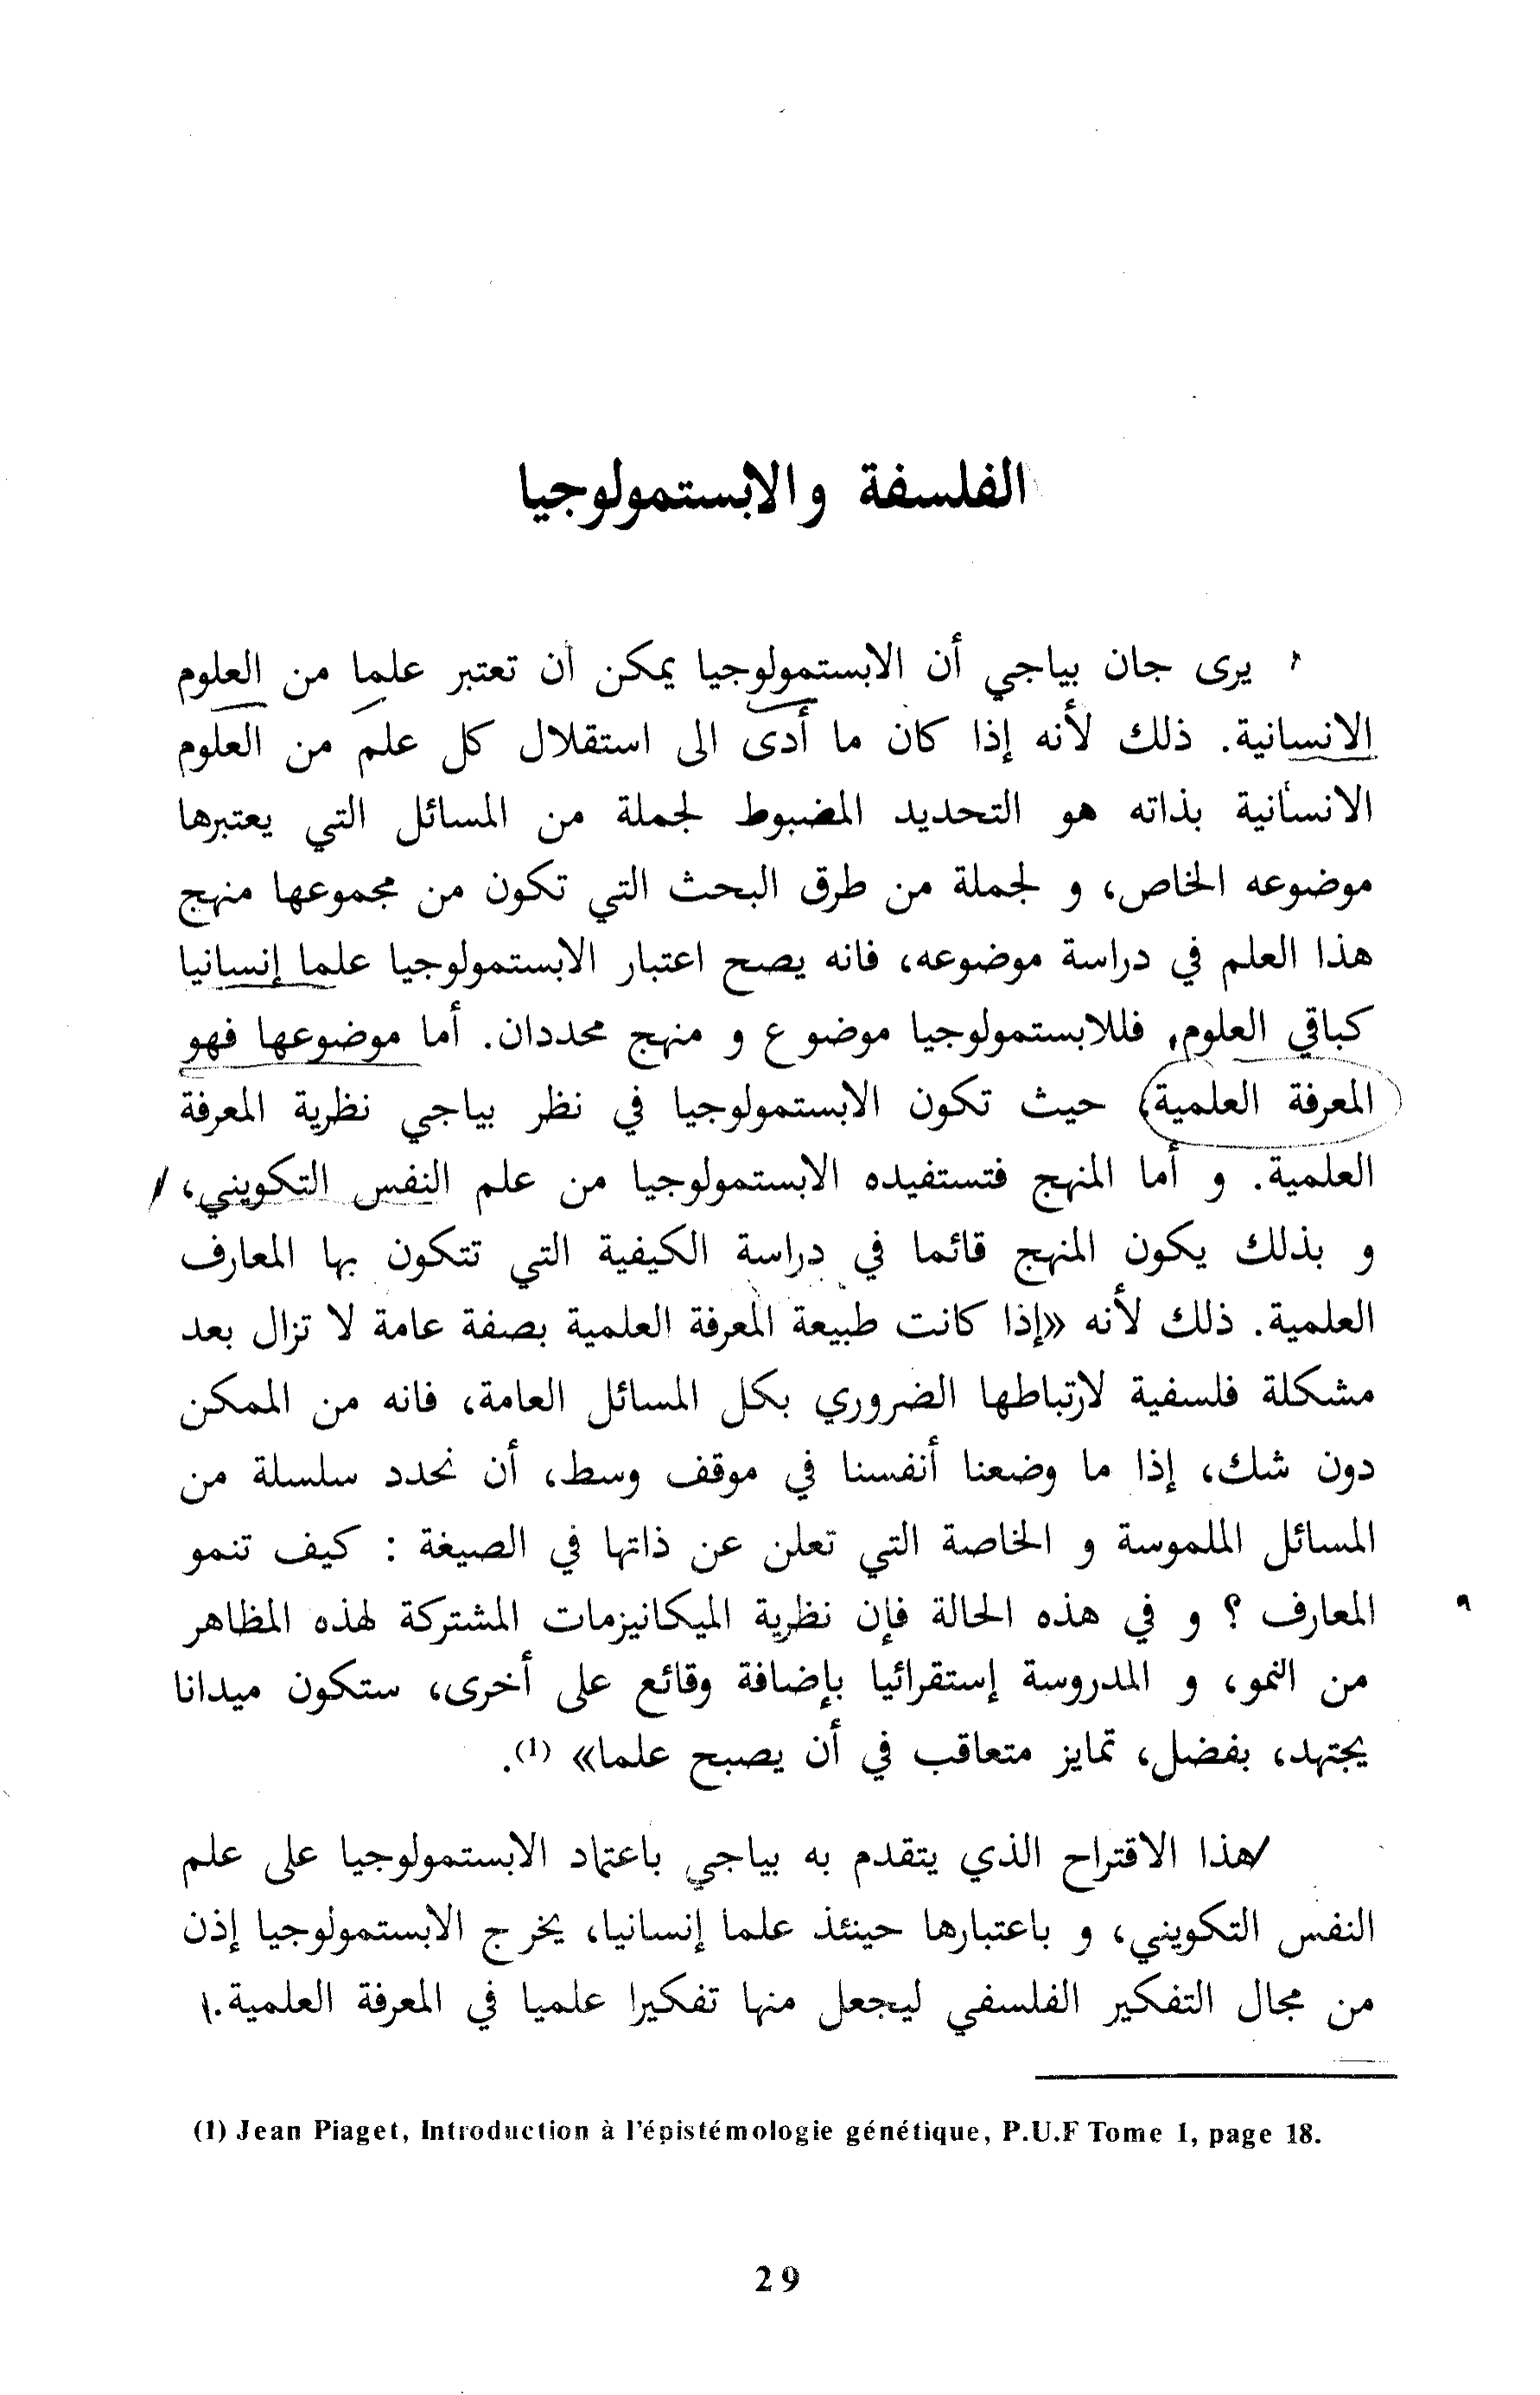 الفلسفة والابستمولوجيا
يرى جان بياجي أن الابستمولوجيا يمكن أن تعتبر علما من العلوم
الانسانية. ذلك لأنه إذا كان ما أدى الى استقلال كل علم من العلوم
الانسانية بذاته هو التحديد المضبوط لجملة من المسائل التي يعتبرها
موضوعه الخاص، و لجملة من طرق البحث التي تكون من مجموعها منهج
هذا العلم في دراسة موضوعه، فانه يصح اعتبار الابستمولوجيا علما إنسانيا
كباقي العلوم, فللابستمولوجيا موضوع و منهج محددان. أما موضوعها فهو
المعرفة العلمية، حيث تكون الابستمولوجيا في نظر بياجي نظرية المعرفة
العلمية. و أما المنهج فتستفيده الابستمولوجيا من علم النفس التكويني،
و بذلك يكون المنهج قائما في دراسة الكيفية التي تتكون بها المعارف
العلمية. ذلك لأنه «إذا كانت طبيعة المعرفة العلمية بصفة عامة لا تزال بعد
مشكلة فلسفية لارتباطها الضروري بكل المسائل العامة، فانه من الممكن
دون شك، إذا ما وضعنا أنفسنا في موقف وسط، أن نحدد سلسلة من
المسائل الملموسة و الخاصة التي تعلن عن ذاتها في الصيغة : كيف تنمو
المعارف ؟ و في هذه الحالة فإن نظرية الميكانيزمات المشتركة لهذه المظاهر
من النمو، و المدروسة إستقرائيا بإضافة وقائع على أخرى، ستكون ميدانا
يجتهد، بفضل، تمايز متعاقب في أن يصبح علما» (1).
هذا الاقتراح الذي يتقدم به بياجي باعتماد الابستمولوجيا على علم
النفس التكويني، و باعتبارها حينئذ علما إنسانيا، يخرج الابستمولوجيا إذن
من مجال التفكير الفلسفي ليجعل منها تفكيرا علميا في المعرفة العلمية.
(1) Jean Piaget, Introduction à l'épistémologie génétique, P.U.F Tome 1, page 18.
29